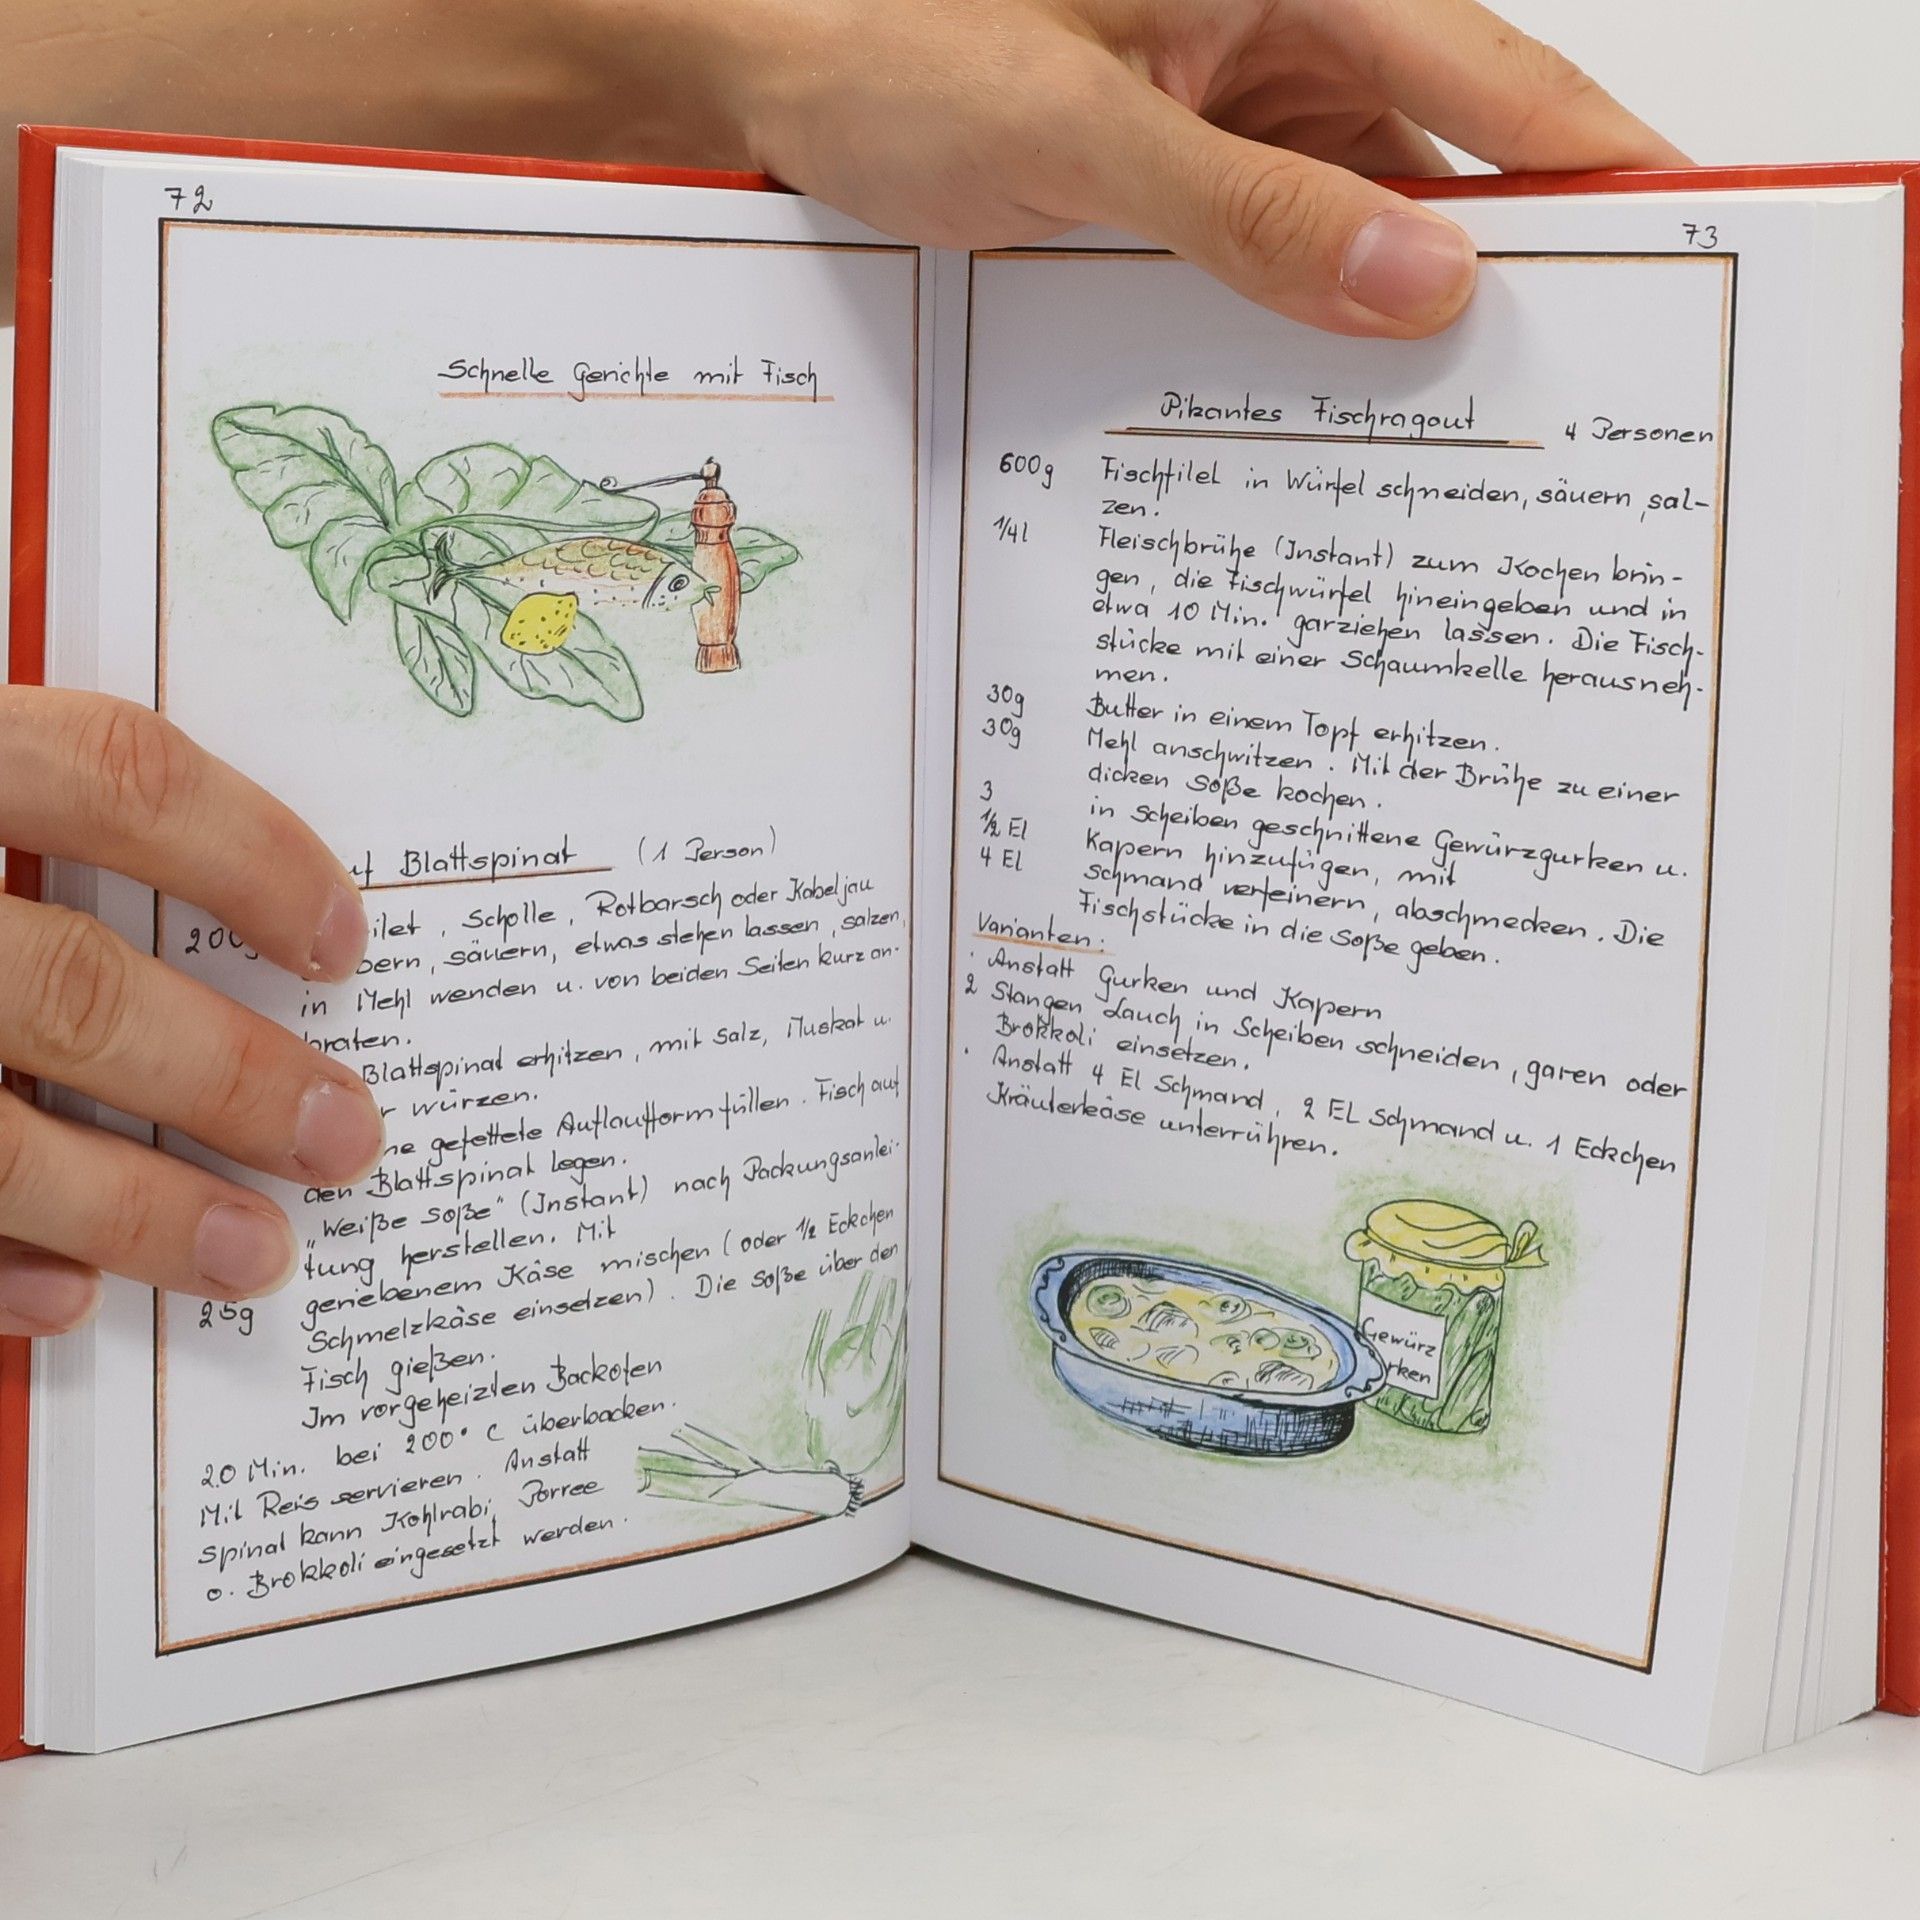 72
Schnelle Gerichte mit Fisch
Blattspinat (1 Person)
Scholle, Rotbarsch oder Kabeljau
säuern, etwas stehen lassen, salzen,
in Mehl wenden u. von beiden Seiten kurz an-
braten.
Blattspinat erhitzen, mit Salz, Muskat u.
würzen.
gefettete Auflaufform füllen. Fisch auf
den Blattspinat legen.
„Weiße Soße" (Instant) nach Packungsanlei-
tung herstellen. Mit
25g geriebenem Käse mischen (oder 1/2 Eckchen
Schmelzkäse einsetzen). Die Soße über den
Fisch gießen.
Im vorgeheizten Backofen
20 Min. bei 200° C überbacken.
Mit Reis servieren. Anstatt
Spinat kann Kohlrabi, Porree
o. Brokkoli eingesetzt werden.
73
Pikantes Fischragout 4 Personen
600g Fischfilet in Würfel schneiden, säuern, sal-
zen.
1/4 l Fleischbrühe (Instant) zum Kochen brin-
gen, die Fischwürfel hineingeben und in
etwa 10 Min. garziehen lassen. Die Fisch-
stücke mit einer Schaumkelle herausneh-
men.
30g Butter in einem Topf erhitzen.
30g Mehl anschwitzen. Mit der Brühe zu einer
dicken Soße kochen.
3 in Scheiben geschnittene Gewürzgurken u.
1/2 El Kapern hinzufügen, mit
4 El Schmand verfeinern, abschmecken. Die
Fischstücke in die Soße geben.
Varianten:
· Anstatt Gurken und Kapern
2 Stangen Lauch in Scheiben schneiden, garen oder
Brokkoli einsetzen.
· Anstatt 4 El Schmand, 2 EL Schmand u. 1 Eckchen
Kräuterkäse unterrühren.
Gewürz
rken